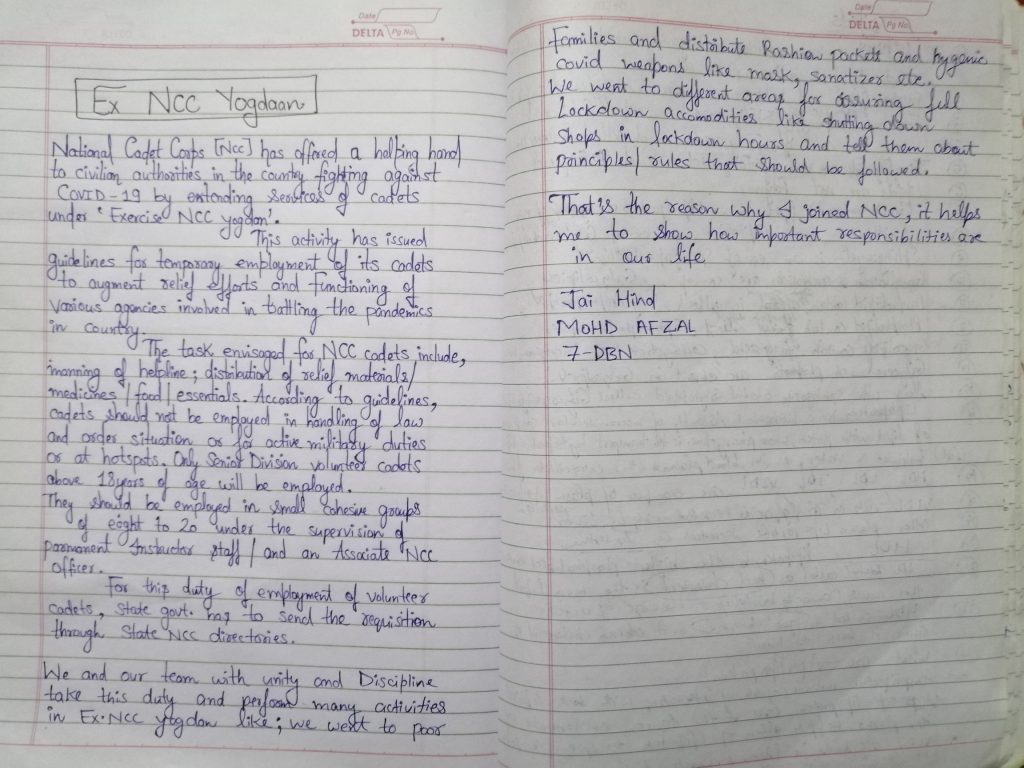 Date
DELTA Pg No
Ex NCC Yogdaan
National Cadet Corps [NCC] has offered a helping hand
to civilian authorities in the country fighting against
COVID-19 by extending services of cadets
under 'Exercise NCC yogdan'.
This activity has issued
guidelines for temporary employment of its cadets
to augment relief efforts and functioning of
various agencies involved in battling the pandemics
in country.
The task envisaged for NCC cadets include,
manning of helpline; distribution of relief materials/
medicines/food/essentials. According to guidelines,
cadets should not be employed in handling of law
and order situation or for active military duties
or at hotspots. Only Senior Division volunteer cadets
above 18years of age will be employed.
They should be employed in small cohesive groups
of eight to 20 under the supervision of
parmanent Instructor staff/and an Associate NCC
officer.
For this duty of employment of volunteer
cadets, state govt. has to send the requistion
through State NCC directories.
We and our team with unity and Discipline
take this duty and perform many activities
in Ex.NCC yogdan like; we went to poor
Date
DELTA Pg No
Families and distribute Rashion packets and hygenic
covid weapons like mask, sanatizer etc.
We went to different areas for assuring full
Lockdown accomodities like shutting down
shops in lockdown hours and tell them about
principles/rules that should be followed.
That's the reason why I joined NCC, it helps
me to show how important responsibilities are
in our life
Jai Hind
MOHD AFZAL
7-DBN